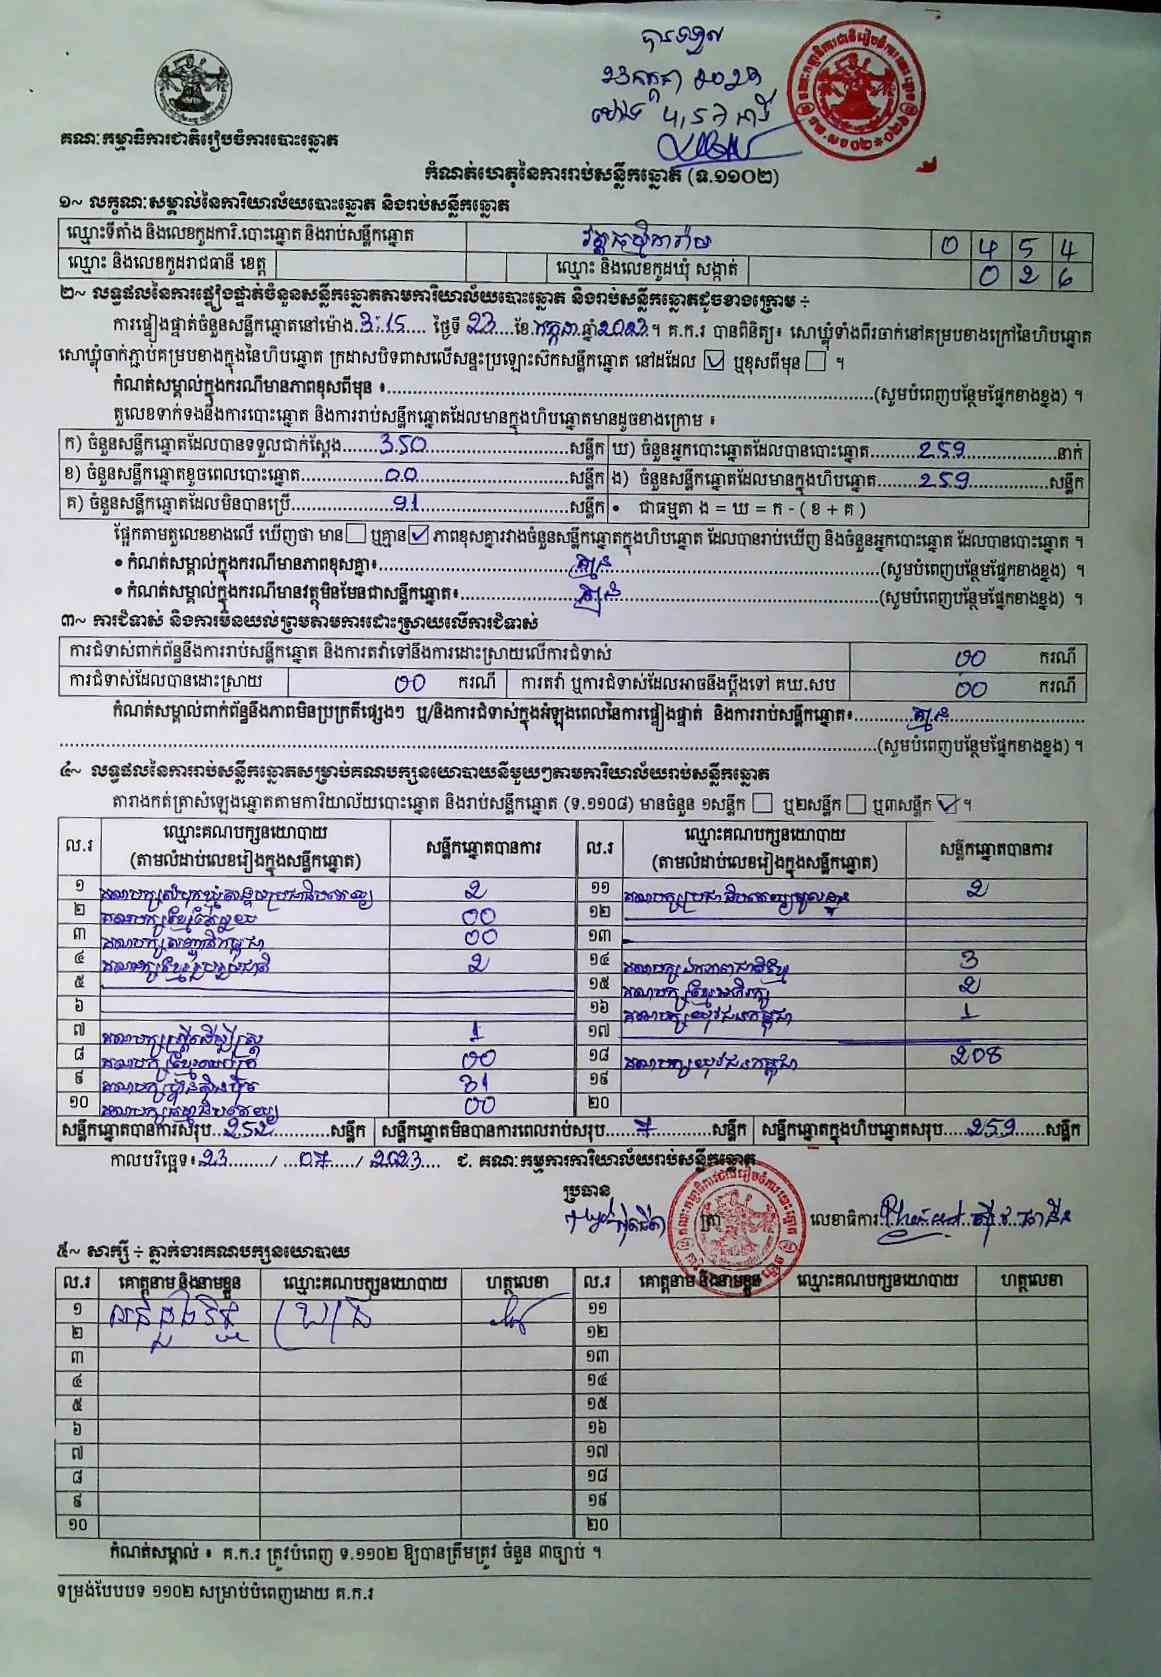 បានទទួល
២៣ កក្កដា ២០២៣
ម៉ោង
គណៈកម្មាធិការជាតិរៀបចំការបោះឆ្នោត
កំណត់ហេតុនៃការរាប់សន្លឹកឆ្នោត (ទ.១១០២)
១~ លក្ខណៈសម្គាល់នៃការិយាល័យបោះឆ្នោត និងរាប់សន្លឹកឆ្នោត
ឈ្មោះទីតាំង និងលេខកូដការិ.បោះឆ្នោត និងរាប់សន្លឹកឆ្នោត 0 4 5 4
ឈ្មោះ និងលេខកូដរាជធានី ខេត្ត ឈ្មោះ និងលេខកូដឃុំ សង្កាត់ 0 2 6
២~ លទ្ធផលនៃការផ្ទៀងផ្ទាត់ចំនួនសន្លឹកឆ្នោតតាមការិយាល័យបោះឆ្នោត និងរាប់សន្លឹកឆ្នោតដូចខាងក្រោម ÷
ការផ្ទៀងផ្ទាត់ចំនួនសន្លឹកឆ្នោតនៅម៉ោង.3:15.... ថ្ងៃទី 23 ខែ.កក្កដា.ឆ្នាំ2023។ គ.ក.រ បានពិនិត្យ៖ សោឃ្លុំទាំងពីរចាក់នៅគម្របខាងក្រៅនៃហិបឆ្នោត
សោឃ្លុំចាក់ភ្ជាប់គម្របខាងក្នុងនៃហិបឆ្នោត ក្រដាសបិទពាសលើសន្ទះប្រឡោះស៊កសន្លឹកឆ្នោត នៅដដែល ☑ ឬខុសពីមុន ☐ ។
កំណត់សម្គាល់ក្នុងករណីមានភាពខុសពីមុន ៖..........(សូមបំពេញបន្ថែមផ្នែកខាងខ្នង) ។
តួលេខទាក់ទងនឹងការបោះឆ្នោត និងការរាប់សន្លឹកឆ្នោតដែលមានក្នុងហិបឆ្នោតមានដូចខាងក្រោម ៖
ក) ចំនួនសន្លឹកឆ្នោតដែលបានទទួលជាក់ស្តែង.......350..........សន្លឹក ឃ) ចំនួនអ្នកបោះឆ្នោតដែលបានបោះឆ្នោត.........259..........នាក់
ខ) ចំនួនសន្លឹកឆ្នោតខូចពេលបោះឆ្នោត..........00..........សន្លឹក ង) ចំនួនសន្លឹកឆ្នោតដែលមានក្នុងហិបឆ្នោត........259..........សន្លឹក
គ) ចំនួនសន្លឹកឆ្នោតដែលមិនបានប្រើ..........91..........សន្លឹក • ជាធម្មតា ង = ឃ = ក - ( ខ + គ )
ផ្អែកតាមតួលេខខាងលើ ឃើញថា មាន ☐ ឬគ្មាន ☑ ភាពខុសគ្នារវាងចំនួនសន្លឹកឆ្នោតក្នុងហិបឆ្នោត ដែលបានរាប់ឃើញ និងចំនួនអ្នកបោះឆ្នោត ដែលបានបោះឆ្នោត ។
• កំណត់សម្គាល់ក្នុងករណីមានភាពខុសគ្នា៖..........គ្មាន..........(សូមបំពេញបន្ថែមផ្នែកខាងខ្នង) ។
• កំណត់សម្គាល់ក្នុងករណីមានវត្ថុមិនមែនជាសន្លឹកឆ្នោត៖..........គ្មាន..........(សូមបំពេញបន្ថែមផ្នែកខាងខ្នង) ។
៣~ ការជំទាស់ និងការមិនយល់ព្រមតាមការដោះស្រាយលើការជំទាស់
ការជំទាស់ពាក់ព័ន្ធនឹងការរាប់សន្លឹកឆ្នោត និងការតវ៉ាទៅនឹងការដោះស្រាយលើការជំទាស់ 00 ករណី
ការជំទាស់ដែលបានដោះស្រាយ 00 ករណី ការតវ៉ា ឬការជំទាស់ដែលអាចនឹងប្តឹងទៅ គឃ.សប 00 ករណី
កំណត់សម្គាល់ពាក់ព័ន្ធនឹងភាពមិនប្រក្រតីផ្សេងៗ ឬ/និងការជំទាស់ក្នុងអំឡុងពេលនៃការផ្ទៀងផ្ទាត់ និងការរាប់សន្លឹកឆ្នោត៖..........គ្មាន..........
..........(សូមបំពេញបន្ថែមផ្នែកខាងខ្នង) ។
៤~ លទ្ធផលនៃការរាប់សន្លឹកឆ្នោតសម្រាប់គណបក្សនយោបាយនីមួយៗតាមការិយាល័យរាប់សន្លឹកឆ្នោត
តារាងកត់ត្រាសំឡេងឆ្នោតតាមការិយាល័យបោះឆ្នោត និងរាប់សន្លឹកឆ្នោត (ទ.១១០៨) មានចំនួន ១សន្លឹក ☐ ឬ២សន្លឹក ☐ ឬ៣សន្លឹក ☑ ។
ល.រ ឈ្មោះគណបក្សនយោបាយ (តាមលំដាប់លេខរៀងក្នុងសន្លឹកឆ្នោត) សន្លឹកឆ្នោតបានការ ល.រ ឈ្មោះគណបក្សនយោបាយ (តាមលំដាប់លេខរៀងក្នុងសន្លឹកឆ្នោត) សន្លឹកឆ្នោតបានការ
១ គណបក្សសំបុកឃ្មុំសង្គមប្រជាធិបតេយ្យ 2 ១១ គណបក្សប្រជាធិបតេយ្យមូលដ្ឋាន 2
២ 00 ១២
៣ 00 ១៣
៤ គណបក្សខ្មែររួបរួមជាតិ 2 ១៤ គណបក្សឯកភាពជាតិខ្មែរ 3
៥ ១៥ គណបក្សខ្មែរអភិរក្ស 2
៦ ១៦ 1
៧ គណបក្សស្ត្រីដើម្បីស្ត្រី 1 ១៧
៨ 00 ១៨ 208
៩ 31 ១៩
១០ 00 ២០
សន្លឹកឆ្នោតបានការសរុប..252..........សន្លឹក សន្លឹកឆ្នោតមិនបានការពេលរាប់សរុប......7..........សន្លឹក សន្លឹកឆ្នោតក្នុងហិបឆ្នោតសរុប.....259.....សន្លឹក
កាលបរិច្ឆេទ៖23......../ ...07...../ 2023.... ជ. គណៈកម្មការការិយាល័យរាប់សន្លឹកឆ្នោត
ប្រធាន
ត្រា លេខាធិការ
៥~ សាក្សី ÷ ភ្នាក់ងារគណបក្សនយោបាយ
ល.រ គោត្តនាម និងនាមខ្លួន ឈ្មោះគណបក្សនយោបាយ ហត្ថលេខា ល.រ គោត្តនាម និងនាមខ្លួន ឈ្មោះគណបក្សនយោបាយ ហត្ថលេខា
១ ១១
២ ១២
៣ ១៣
៤ ១៤
៥ ១៥
៦ ១៦
៧ ១៧
៨ ១៨
៩ ១៩
១០ ២០
កំណត់សម្គាល់ ៖ គ.ក.រ ត្រូវបំពេញ ទ.១១០២ ឱ្យបានត្រឹមត្រូវ ចំនួន ៣ច្បាប់ ។
ទម្រង់បែបបទ ១១០២ សម្រាប់បំពេញដោយ គ.ក.រ